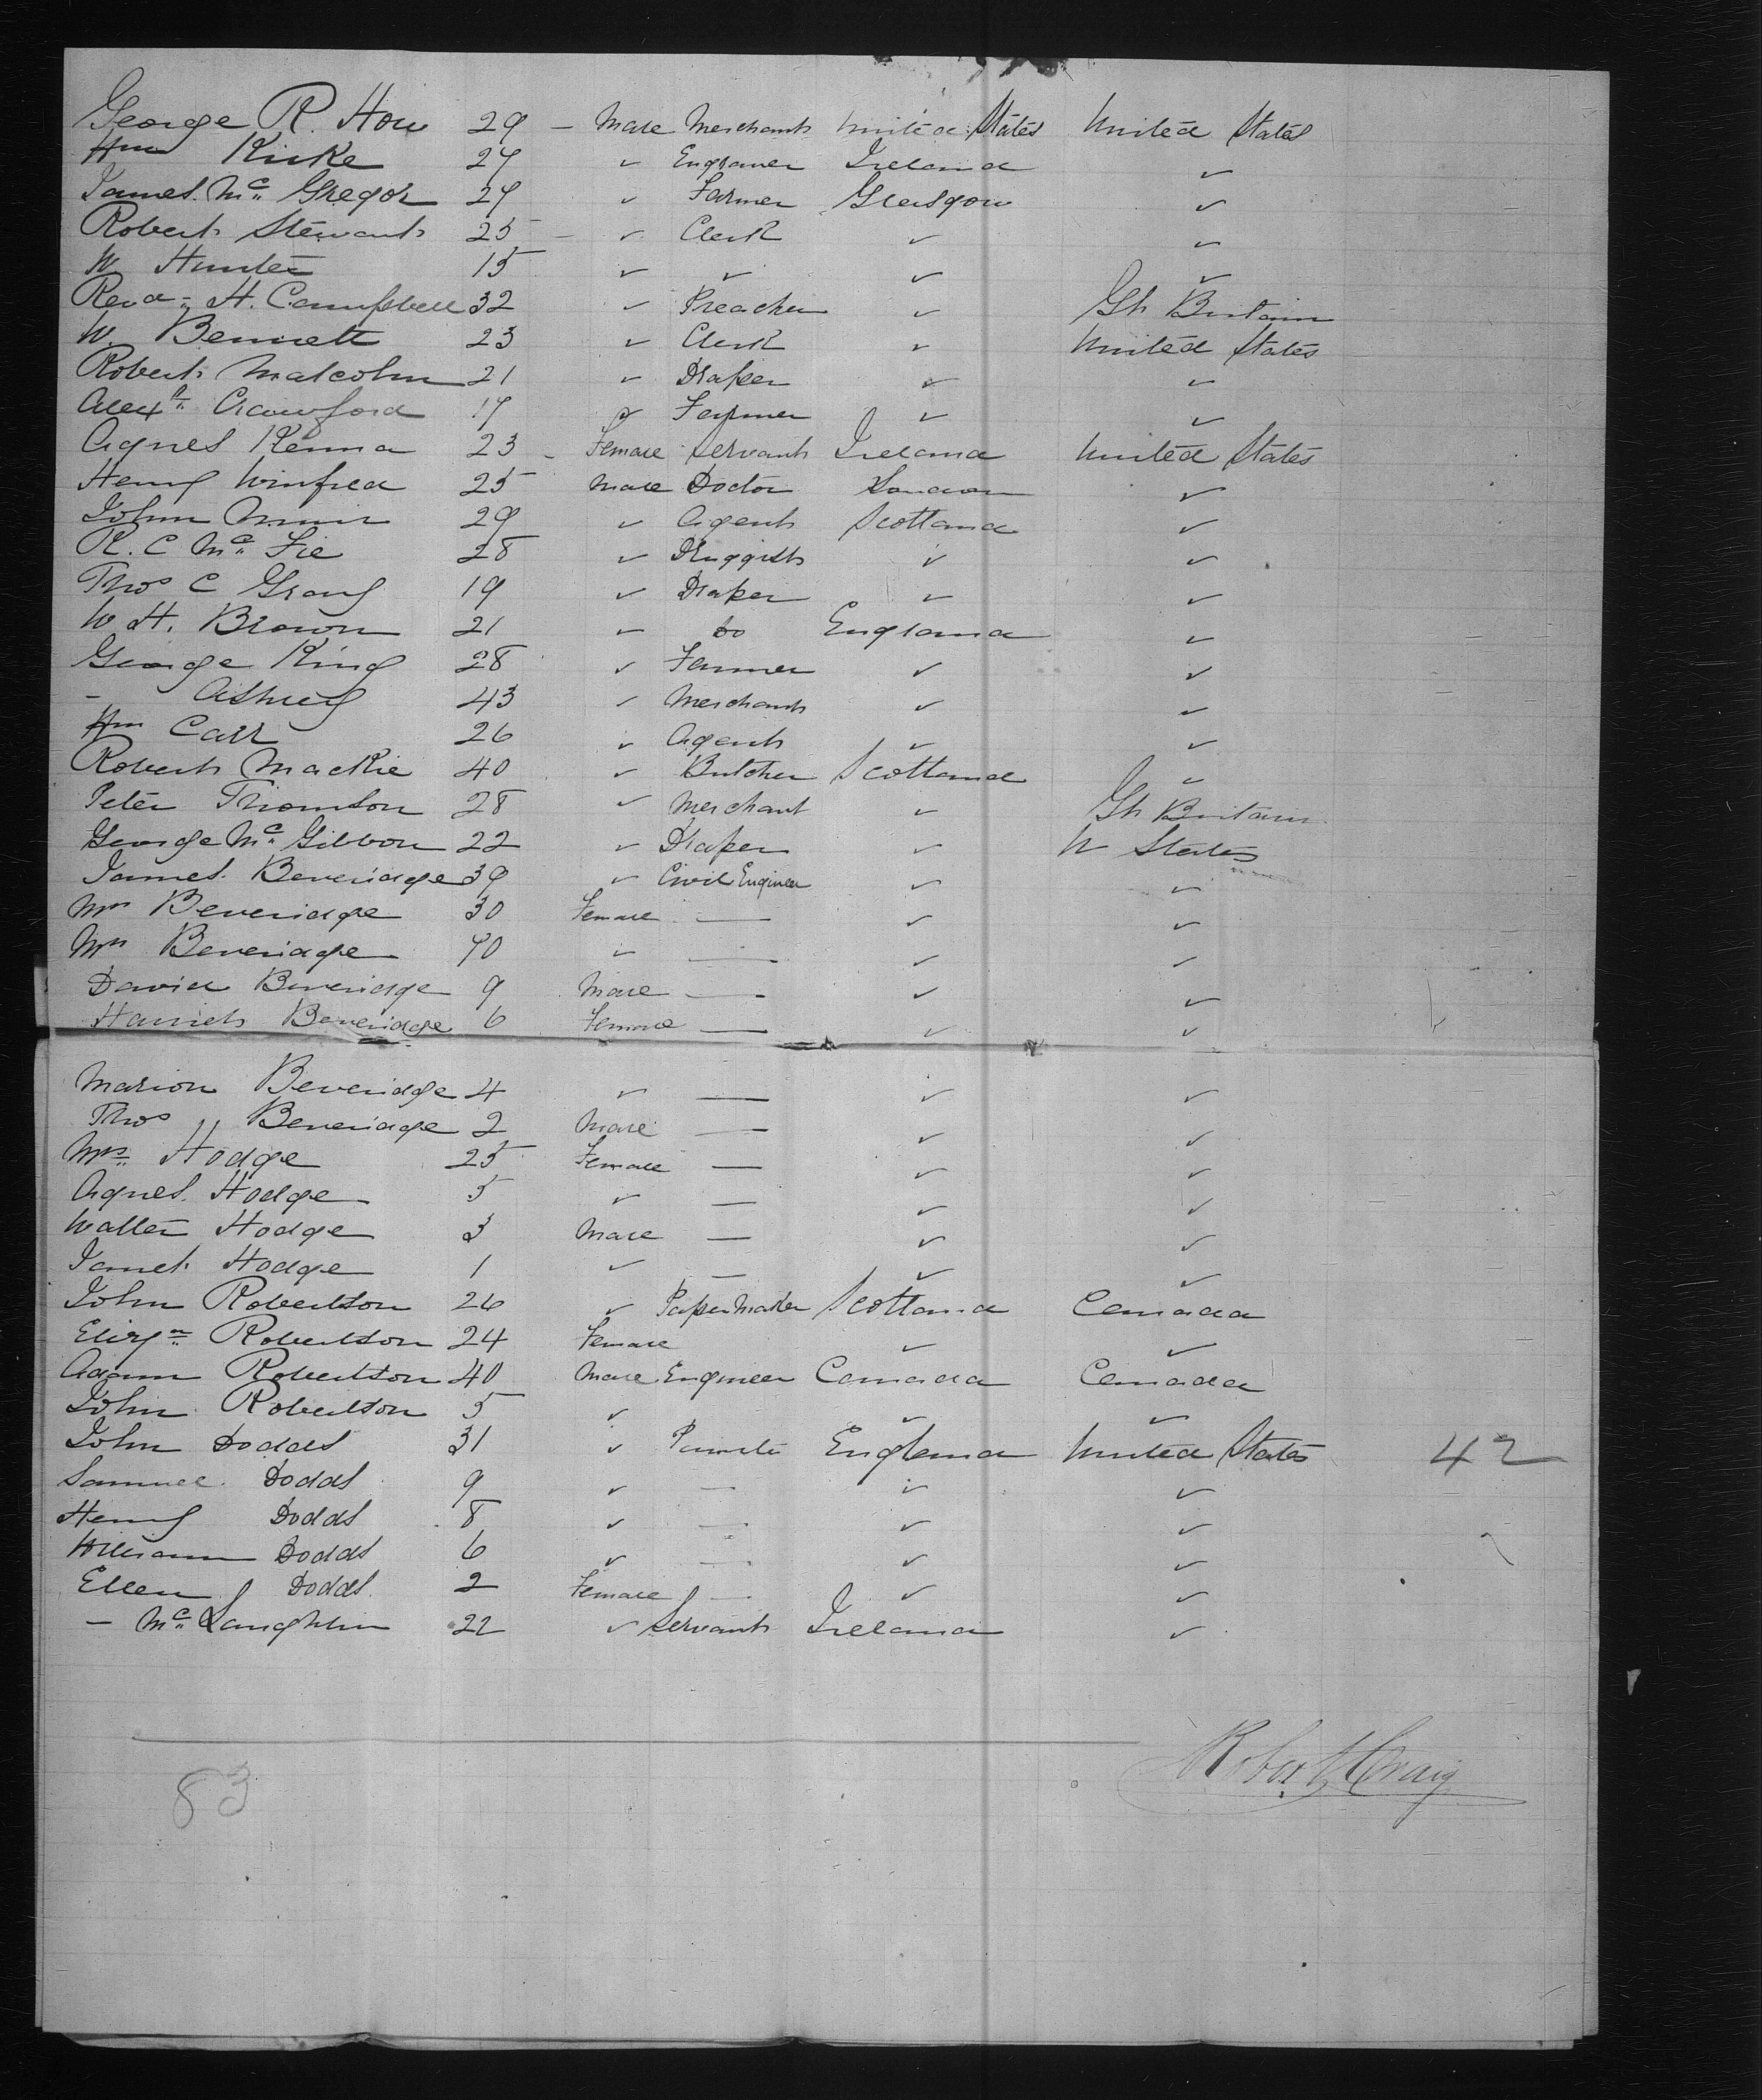 George R. How 29 – Male Merchant United States United States
Wm Kirke 27 ✓ Engraver Ireland ✓
James Mc Gregor 27 ✓ Farmer Glasgow ✓
Robert Stewart 25 – ✓ Clerk ✓ ✓
W Hunter 15 ✓ ✓ ✓ ✓
Revd H. Campbell 32 ✓ Preacher ✓ Gt Britain
W. Bennett 23 ✓ Clerk ✓ United States
Robert Malcolm 21 ✓ Draper ✓ ✓
Alexr Crawford 17 ✓ Farmer ✓ ✓
Agnes Kenna 23 – Female Servant Ireland United States
Henry Winfred 25 Male Doctor London ✓
John Muir 29 ✓ Agent Scotland ✓
R. C Mc Fie 28 ✓ Druggist ✓ ✓
Thos C Grang 19 ✓ Draper ✓ ✓
W H. Brown 21 ✓ Do England ✓
George King 28 ✓ Farmer ✓ ✓
– 43 ✓ Merchant ✓ ✓
Wm Carr 26 ✓ Agent ✓ ✓
Robert Mackie 40 ✓ Butcher Scotland ✓
Peter Thomson 28 ✓ Merchant ✓ Gt Britain
George Mc Gibbon 22 ✓ Draper ✓ U States
James Beveridge 39 ✓ Civil Engineer ✓ ✓
Mrs Beveridge 30 Female — ✓ ✓
Mrs Beveridge 70 ✓ — ✓ ✓
David Beveridge 9 Male — ✓ ✓
Harriet Beveridge 6 Female — ✓ ✓
Marion Beveridge 4 ✓ — ✓ ✓
Thos Beveridge 2 Male — ✓ ✓
Mrs Hodge 25 Female — ✓ ✓
Agnes Hodge 5 ✓ — ✓ ✓
Walter Hodge 3 Male — ✓ ✓
Janet Hodge 1 ✓ — ✓ ✓
John Robertson 26 ✓ Paper Maker Scotland Canada
Elizth Robertson 24 Female ✓ ✓
Adam Robertson 40 Male Engineer Canada Canada
John Robertson 5 ✓ ✓ ✓
John Dodds 31 ✓ England United States 42
Samuel Dodds 9 ✓ – ✓ ✓
Henry Dodds 8 ✓ — ✓ ✓
William Dodds 6 ✓ — ✓ ✓
Ellen Dodds 2 Female — ✓ ✓
– Mc Laughlin 22 ✓ Servant Ireland ✓
Robert Craig
83